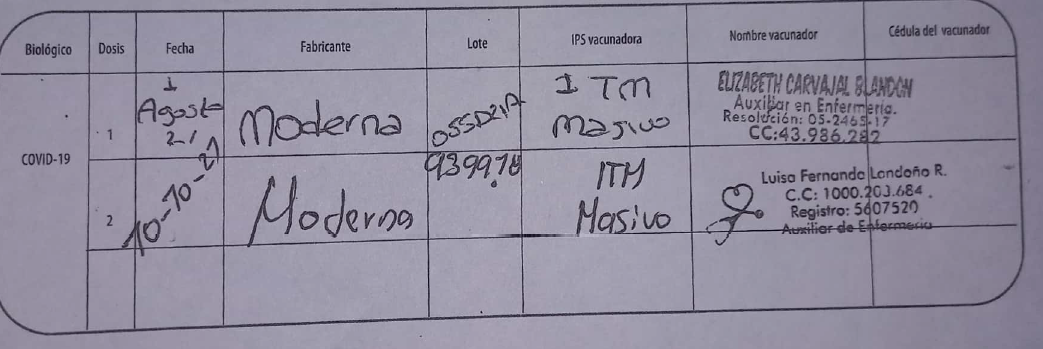 Biológico Dosis Fecha Fabricante Lote IPS vacunadora Nombre vacunador Cédula del vacunador
COVID-19
1
1
Agosto
21
Moderna
055D21A
ITM
Masivo
ELIZABETH CARVAJAL BLANDON
Auxiliar en Enfermería.
Resolución: 05-2465-17
CC:43.986.282
2
10-10-21
Moderna
939978
ITM
Masivo
Luisa Fernanda Londoño R.
C.C: 1000.203.684
Registro: 5607520
Auxiliar de Enfermeria